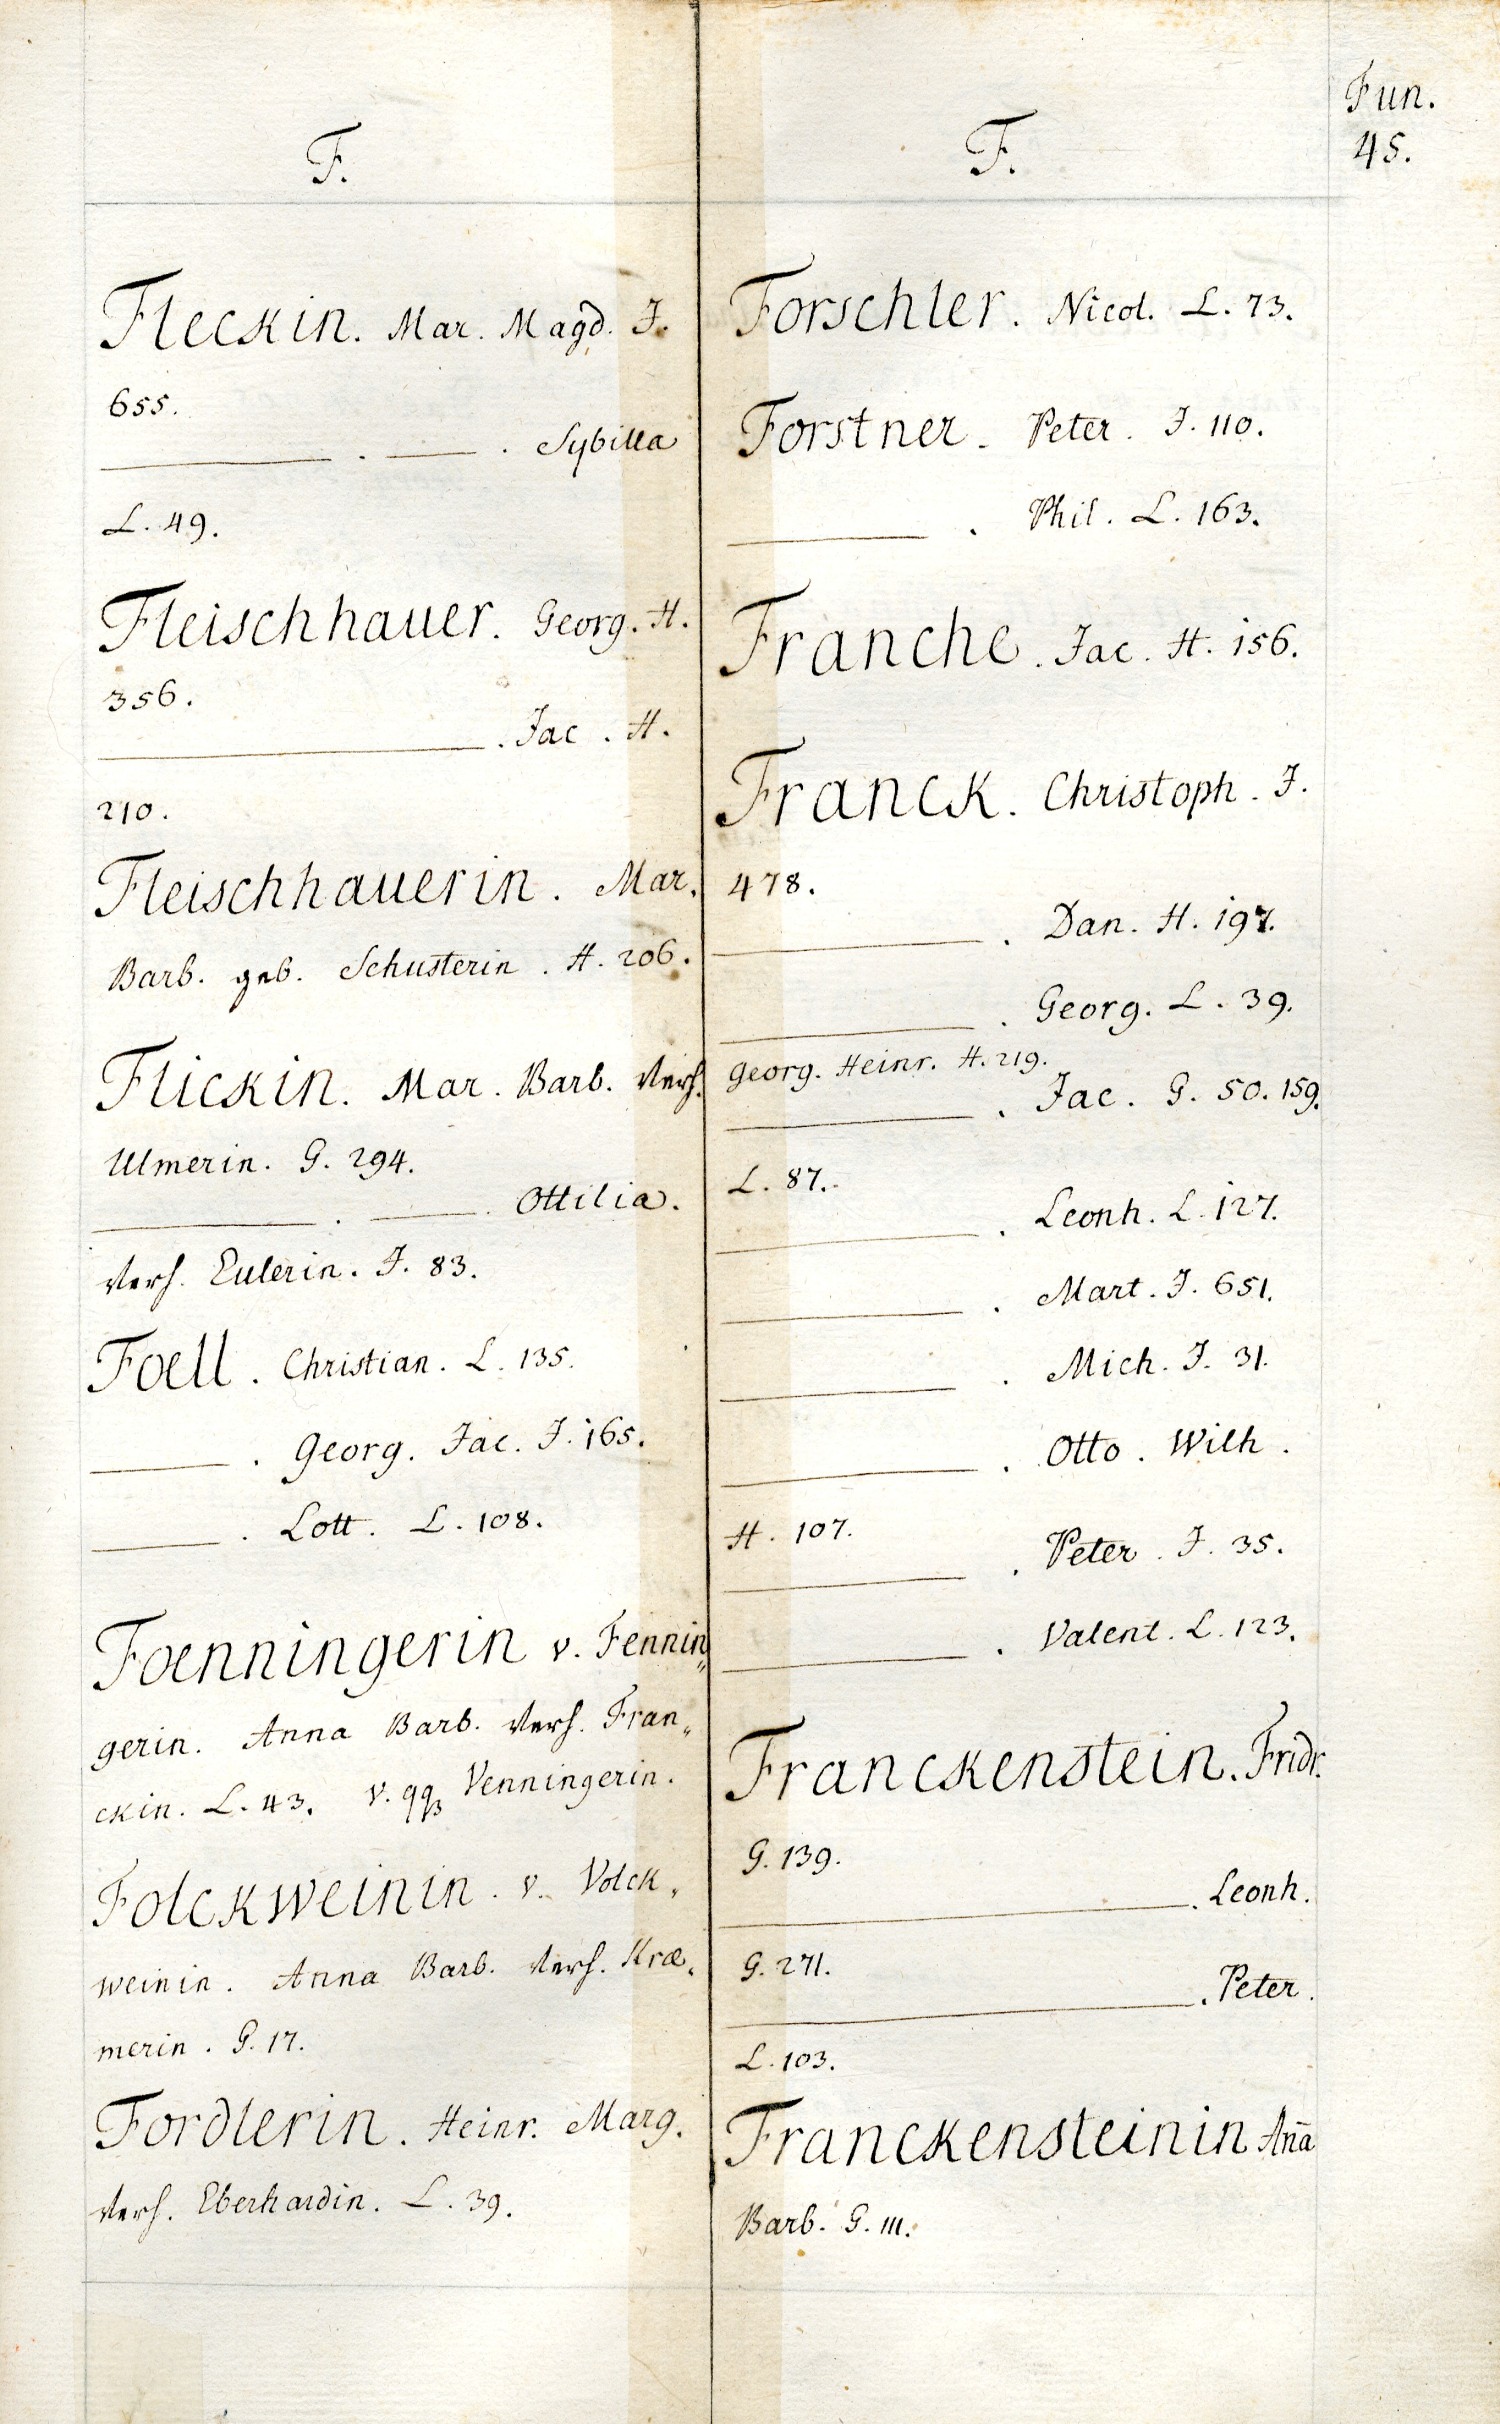 Fun.
45.
F.
Fleckin. Mar. Magd. J.
655.
———. ———. Sybilla
L. 49.
Fleischhauer. Georg. H.
356.
———. Jac. H.
210.
Fleischhauerin. Mar.
Barb. geb. Schusterin. H. 206.
Flickin. Mar. Barb. verh.
Ulmerin. G. 294.
———. ———. Ottilia.
verh. Eulerin. J. 83.
Foell. Christian. L. 135.
———. Georg. Jac. J. 165.
———. Lott. L. 108.
Foenningerin v. Fennin„
gerin. Anna Barb. verh. Fran„
ckin. L. 43. v. qq Venningerin.
Folckweinin. v. Volck„
weinin. Anna Barb. verh. Kræ„
merin. G. 17.
Fordlerin. Heinr. Marg.
verh. Eberhardin. L. 39.
F.
Forschler. Nicol. L. 73.
Forstner. Peter. J. 110.
———. Phil. L. 163.
Franche. Jac. H. 156.
Franck. Christoph. J.
478.
———. Dan. H. 197.
———. Georg. L. 39.
Georg. Heinr. H. 219.
———. Jac. G. 50. 159.
L. 87.
———. Leonh. L. 127.
———. Mart. J. 651.
———. Mich. J. 31.
———. Otto. Wilh.
H. 107.
———. Peter. J. 35.
———. Valent. L. 123.
Franckenstein. Fridr.
G. 139.
———. Leonh.
G. 271.
———. Peter.
L. 103.
Franckensteinin Ana̅
Barb. G. 111.